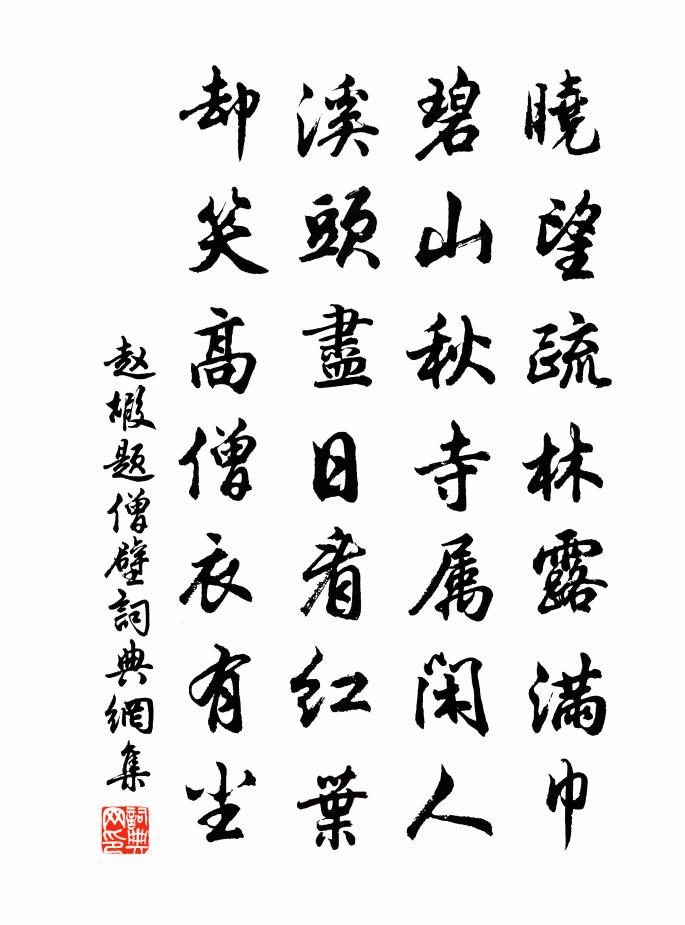 曉望疏林露滿巾
碧山秋寺属閑人
溪頭盡日看紅葉
却笑高僧衣有尘
赵嘏题僧壁詞典網集
詞典网印